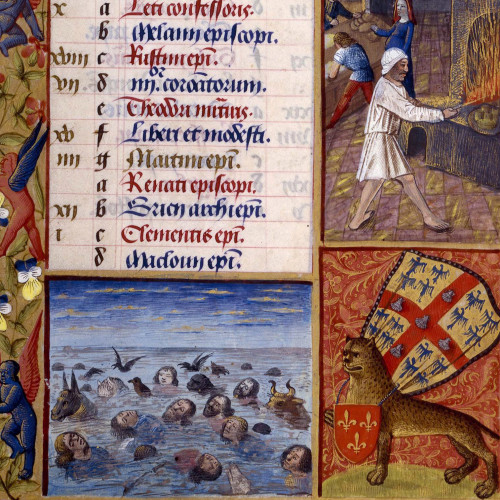 x a Leti confessoris.
b Melanii episcopi.
xviii c Rustini epi.
vii d iiii. cor coronatorum.
e Theodori martiris.
xv f Liberi et modesti.
iiii g Martini epi.
a Renati episcopi.
xii b Bricii archiepi.
i c Clementis epi.
d Macloun epi.